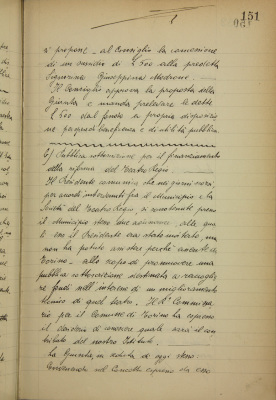 151
si propone al Consiglio la concessione
di un sussidio di L 500 alla predetta
Signorina Giuseppina
Il Consiglio approva la proposta della
Giunta e manda prelevare le dette
L 500 dal fondo a propria disposizio
ne per opere di beneficenza e di utilità pubblica.
6) Pubblica sottoscrizione per il finanziamento
della riforma del Teatro Regio.
Il Presidente comunica che nei giorni scorsi,
per accordi intervenuti fra il Municipio e la
Società del Teatro Regio, si è tenuta presso
il Municipio stesso una adunanza, alla qua
le era il Presidente era stato invitato, ma
non ha potuto assistere perchè assente da
Torino, allo scopo di promuovere una
pubblica sottoscrizione destinata a raccoglie
re fondi nell'interesse di un miglioramento
tecnico di quel teatro. Il R° Commissa
rio per il Comune di Torino ha espresso
il desiderio di conoscere quale sarà il con
tributo del nostro Istituto.
La Giunta, in seduta di oggi stesso,